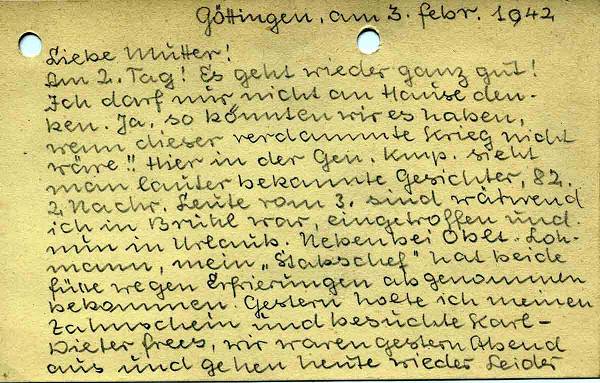 Göttingen, am 3. Febr. 1942
Liebe Mutter!
Am 2. Tag! Es geht wieder ganz gut!
Ich darf nur nicht an Hause den-
ken. Ja, so könnten wir es haben,
wenn dieser verdammte Krieg nicht
wäre!! Hier in der Gen. Kmp. sieht
man lauter bekannte Gesichter, 82.
2. Nachr. Leute vom 3. sind während
ich in Brühl war, eingetroffen und
nun in Urlaub. Nebenbei Oblt. Loh-
mann, mein „Stabschef" hat beide
Füße wegen Erfrierungen abgenommen
bekommen. Gestern holte ich meinen
Zahnschein und besuchte Karl-
Dieter Frees, wir waren gestern Abend
aus und gehen heute wieder. Leider